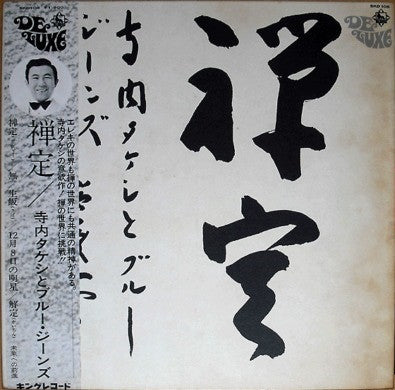 DE LUXE
SKD108
禅定
寺内タケシとブルー
ジーンズ
DE LUXE
エレキの世界も禅の世界にも共通の精神がある。
寺内タケシの意欲作 禅の世界に挑戦!!
禅定/寺内タケシとブルー・ジーンズ
12月8日の明星
解定
未来への前進
キングレコード